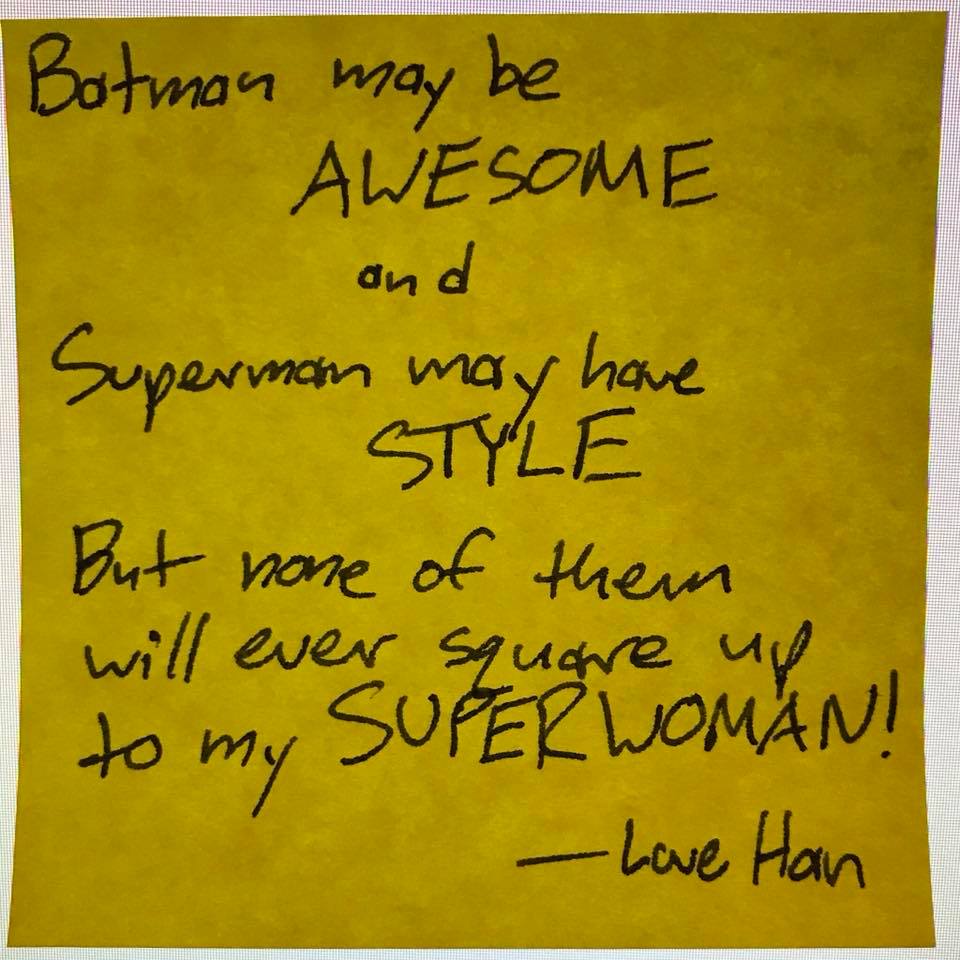 Batman may be
AWESOME
and
Superman may have
STYLE
But none of them
will ever square up
to my SUPERWOMAN!
— Love Han